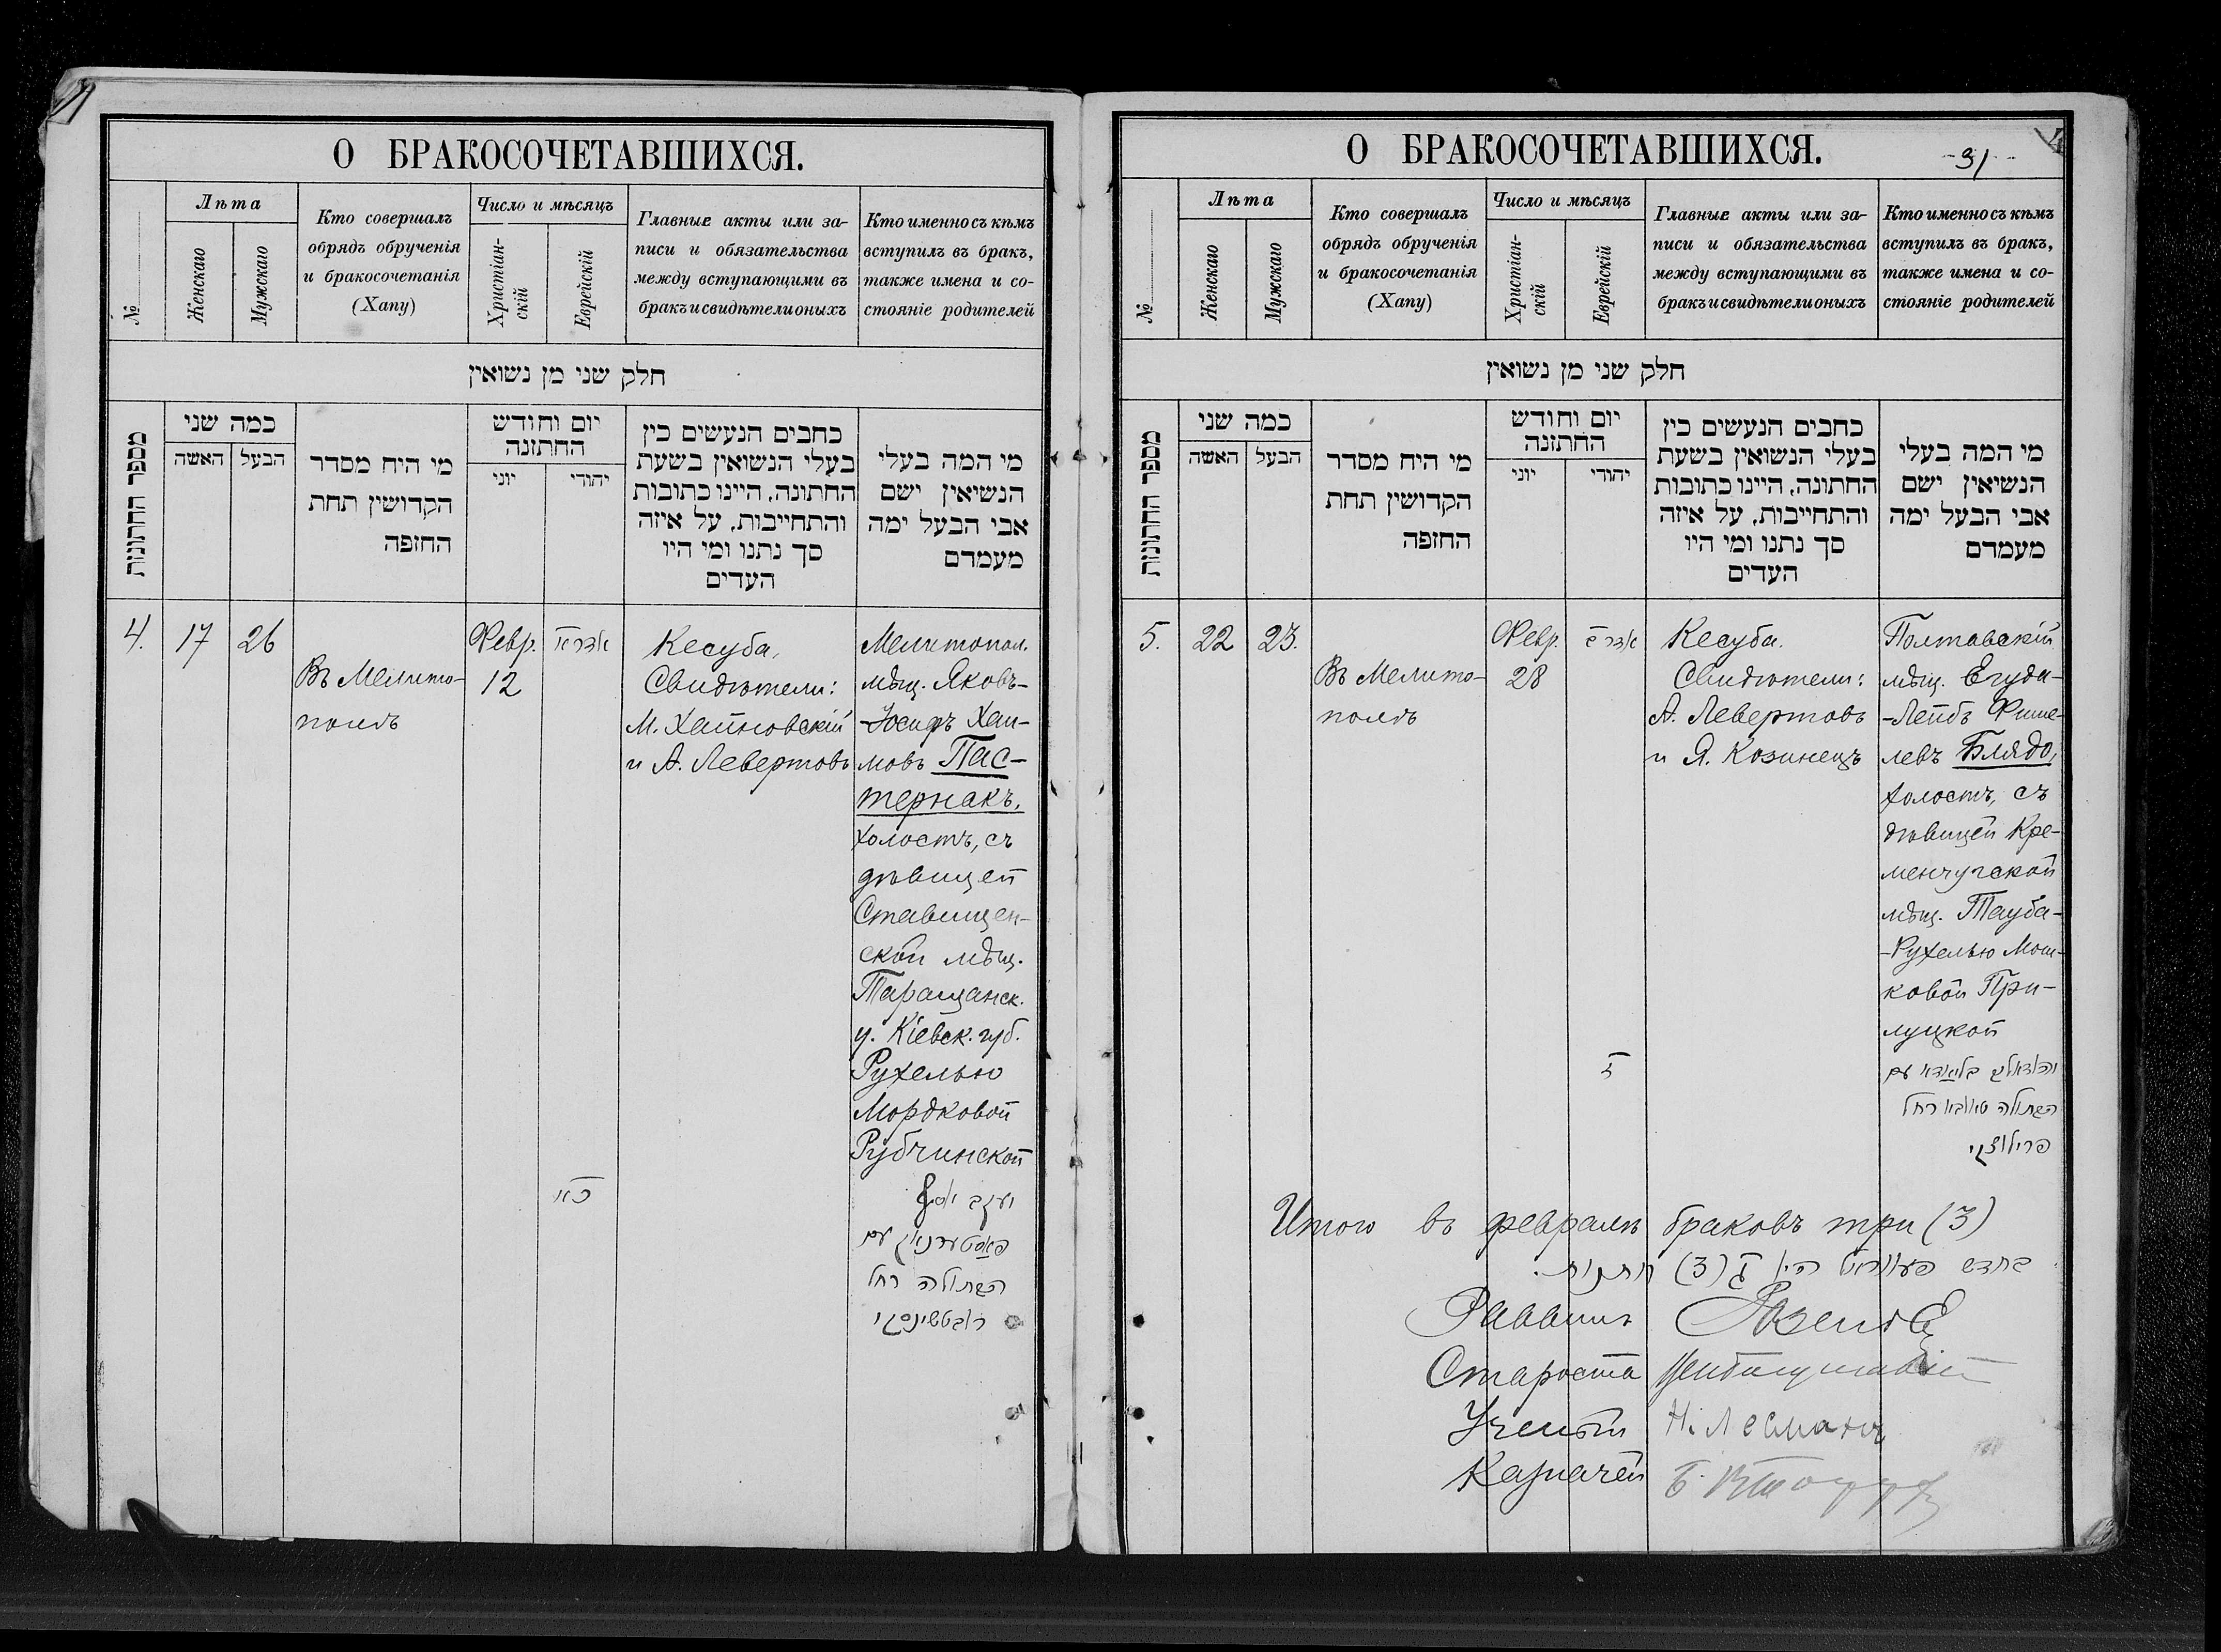 О БРАКОСОЧЕТАВШИХСЯ.
№
Лѣта
Женскаго
Мужскаго
Кто совершалъ
обрядъ обрученія
и бракосочетанія
(Хапу)
Число и мѣсяцъ
Христіан-
скій
Еврейскій
Главныe акты или за-
писи и обязательства
между вступающими въ
бракъ и свидѣтели оныхъ
Кто именно съ кѣмъ
вступилъ въ бракъ,
также имена и со-
стояніе родителей
חלק שני מן נשואין
מספר החתונות
כמה שני
האשה
הבעל
מי היח מסדר
הקדושין תחת
החופה
יום וחודש
החתונה
יוני
יהודי
כחבים הנעשים כין
בעלי הנשואין בשעת
החתונה, היינו כתובות
והתחייבות, על איזה
סך נתנו ומי היו
העדים
מי המה בעלי
הנשיאין ישם
אבי הבעל ימה
מעמדם
4.
17
26
Въ Мелито-
полѣ
Февр.
12
Кесуба,
Свидѣтели:
М. Хайновскій
и А. Левертовъ
Мелитопол.
мѣщ. Яковъ-
-Іосифъ Хаи-
мовъ Пас-
тернакъ,
холостъ, съ
дѣвицей
Ставищен-
ской мѣщ.
Таращанск.
у. Кіевск. губ.
Рухелью
Мордковой
Рубчинской
כ״א
יעקב יוסף
פאסטערנאק עם
הבתולה רחל
ראבטשינסקי
О БРАКОСОЧЕТАВШИХСЯ.
31
4
№
Лѣта
Женскаго
Мужскаго
Кто совершалъ
обрядъ обрученія
и бракосочетанія
(Хапу)
Число и мѣсяцъ
Христіан-
скій
Еврейскій
Главныe акты или за-
писи и обязательства
между вступающими въ
бракъ и свидѣтели оныхъ
Кто именно съ кѣмъ
вступилъ въ бракъ,
также имена и со-
стояніе родителей
חלק שני מן נשואין
מספר החתונות
כמה שני
האשה
הבעל
מי היח מסדר
הקדושין תחת
החופה
יום וחודש
החתונה
יוני
יהודי
כחבים הנעשים כין
בעלי הנשואין בשעת
החתונה, היינו כתובות
והתחייבות, על איזה
סך נתנו ומי היו
העדים
מי המה בעלי
הנשיאין ישם
אבי הבעל ימה
מעמדם
5.
22
23.
Въ Мелито-
полѣ
Февр.
28
Кесуба.
Свидѣтели:
А. Левертовъ
и Я. Козинецъ
Полтавскій
мѣщ. Егуда-
-Лейбъ Фише-
левъ Блядо,
холостъ, съ
дѣвицей Кре-
менчугской
мѣщ. Тауба-
-Рухелью Мош-
ковой При-
луцкой
בליאדא עם
הבתולה טאובא רחל
פרילוצקי
Итого въ февралѣ браковъ три (3)
בחדש פעווראל היו ג (3) חתנות.
Раввинъ
Староста
Ученый Н. Лесманъ
Казначей